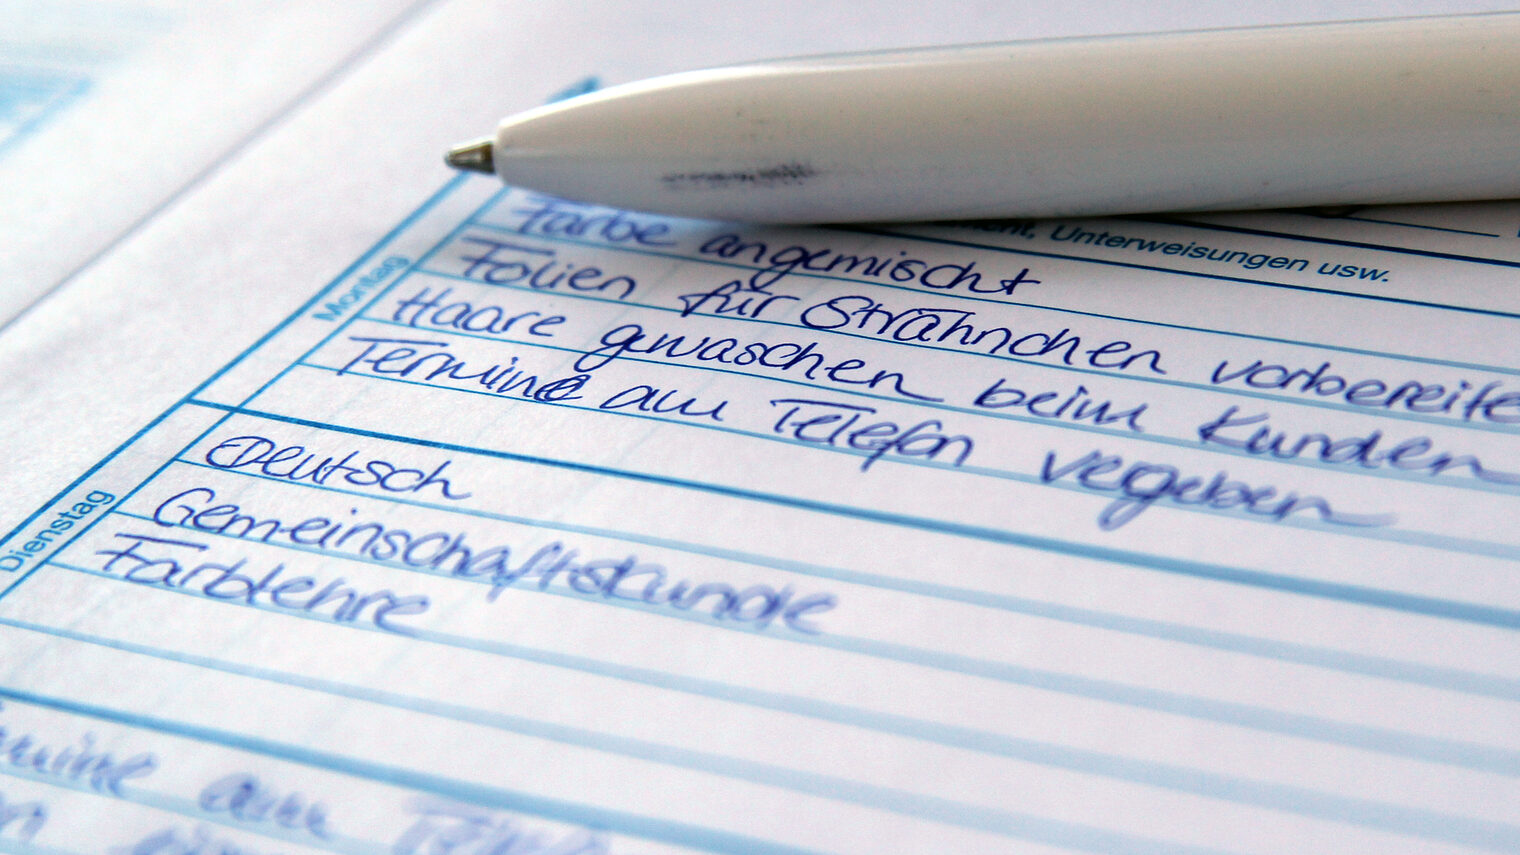 Unterweisungen usw.
Montag
Farbe angemischt
Folien für Strähnchen vorbereite
Haare gewaschen beim Kunden
Termine am Telefon vergeben
Dienstag
Deutsch
Gemeinschaftskunde
Farblehre
am